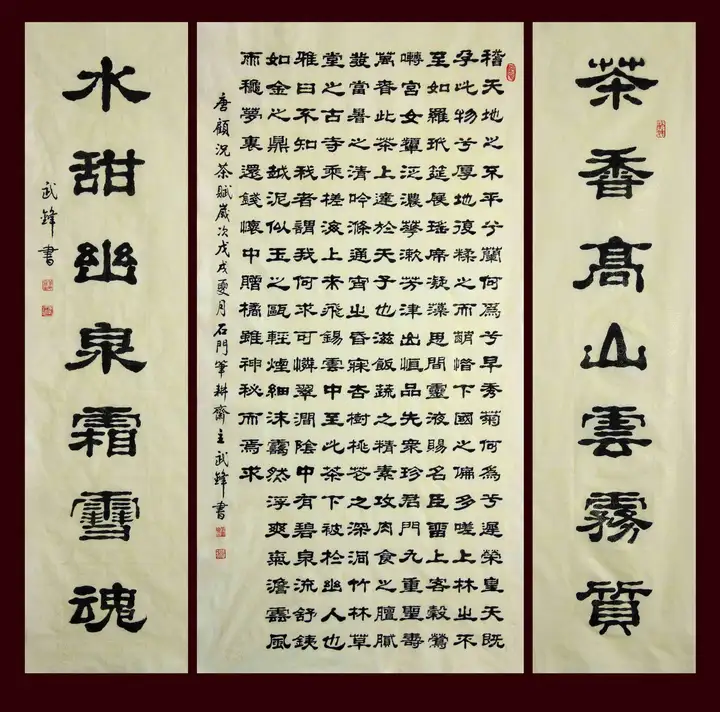 茶香高山雲霧質
稽天地之不平兮蘭何為兮早秀菊何為兮遲榮皇天既
孕此物兮厚地復糅之而萌惜下國之偏多嗟上林之不
至如羅玳筵展瑤席凝藻思間靈液賜名臣留上客穀鶯
囀宮女顰泛濃華漱芳津出恒品先衆珍君門九重聖壽
萬春此茶上達於天子也滋飯蔬之精素攻肉食之膻膩
發當暑之清吟滌通宵之昏寐杏樹桃花之深洞竹林草
堂之古寺乘槎海上来飛錫雲中至此茶下被於幽人也
雅曰不知我者謂我何求可憐翠澗陰中有碧泉流舒鋏
如金之鼎越泥似玉之甌輕煙細沫靄然浮爽氣澹雲風
而穠夢裏還錢懷中贈橘雖神秘而焉求
唐顧況茶賦歲次戊戌夏月石門筆耕齋主武鋒書
水甜幽泉霜雪魂
武鋒書